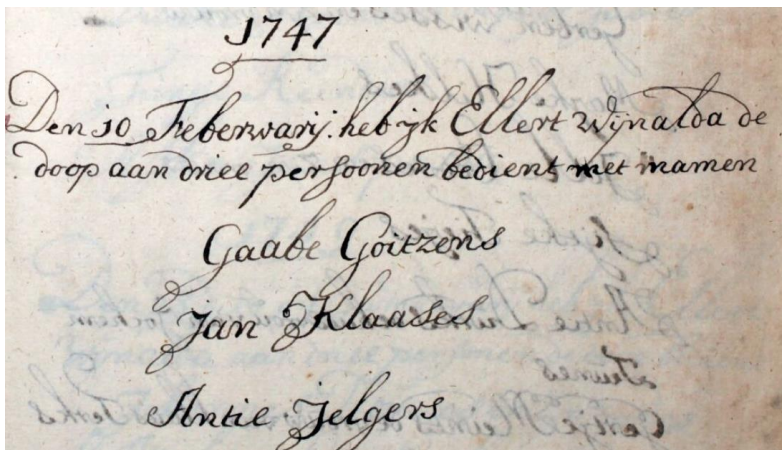 1747
Den 10 Feberwarij. heb ijk Ellert Wijnalda de
doop aan driee persoonen bedient met namen
Gaabe Goitzens
Jan Klaases
Antie Jelgers